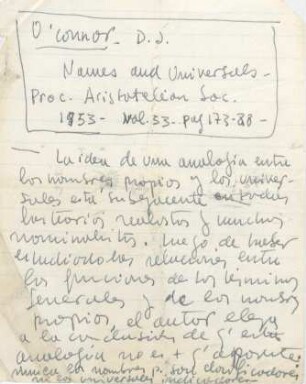 O'Connor - D. J.
Names and Universals -
Proc. Aristotelian Soc.
1953 - Vol. 53 - pag 173-88 -
— La idea de una analogía entre
los nombres propios y los univer-
sales está subyacente en todas
las teorías realistas y muchos
nominalistas. Luego de haber
estudiado las relaciones entre
las funciones de los términos
generales y de los nombres
propios, el autor llega
a la conclusión de q' esta
analogía no es + q' aparente
nunca los nombres p. son
ni los universales indicadores